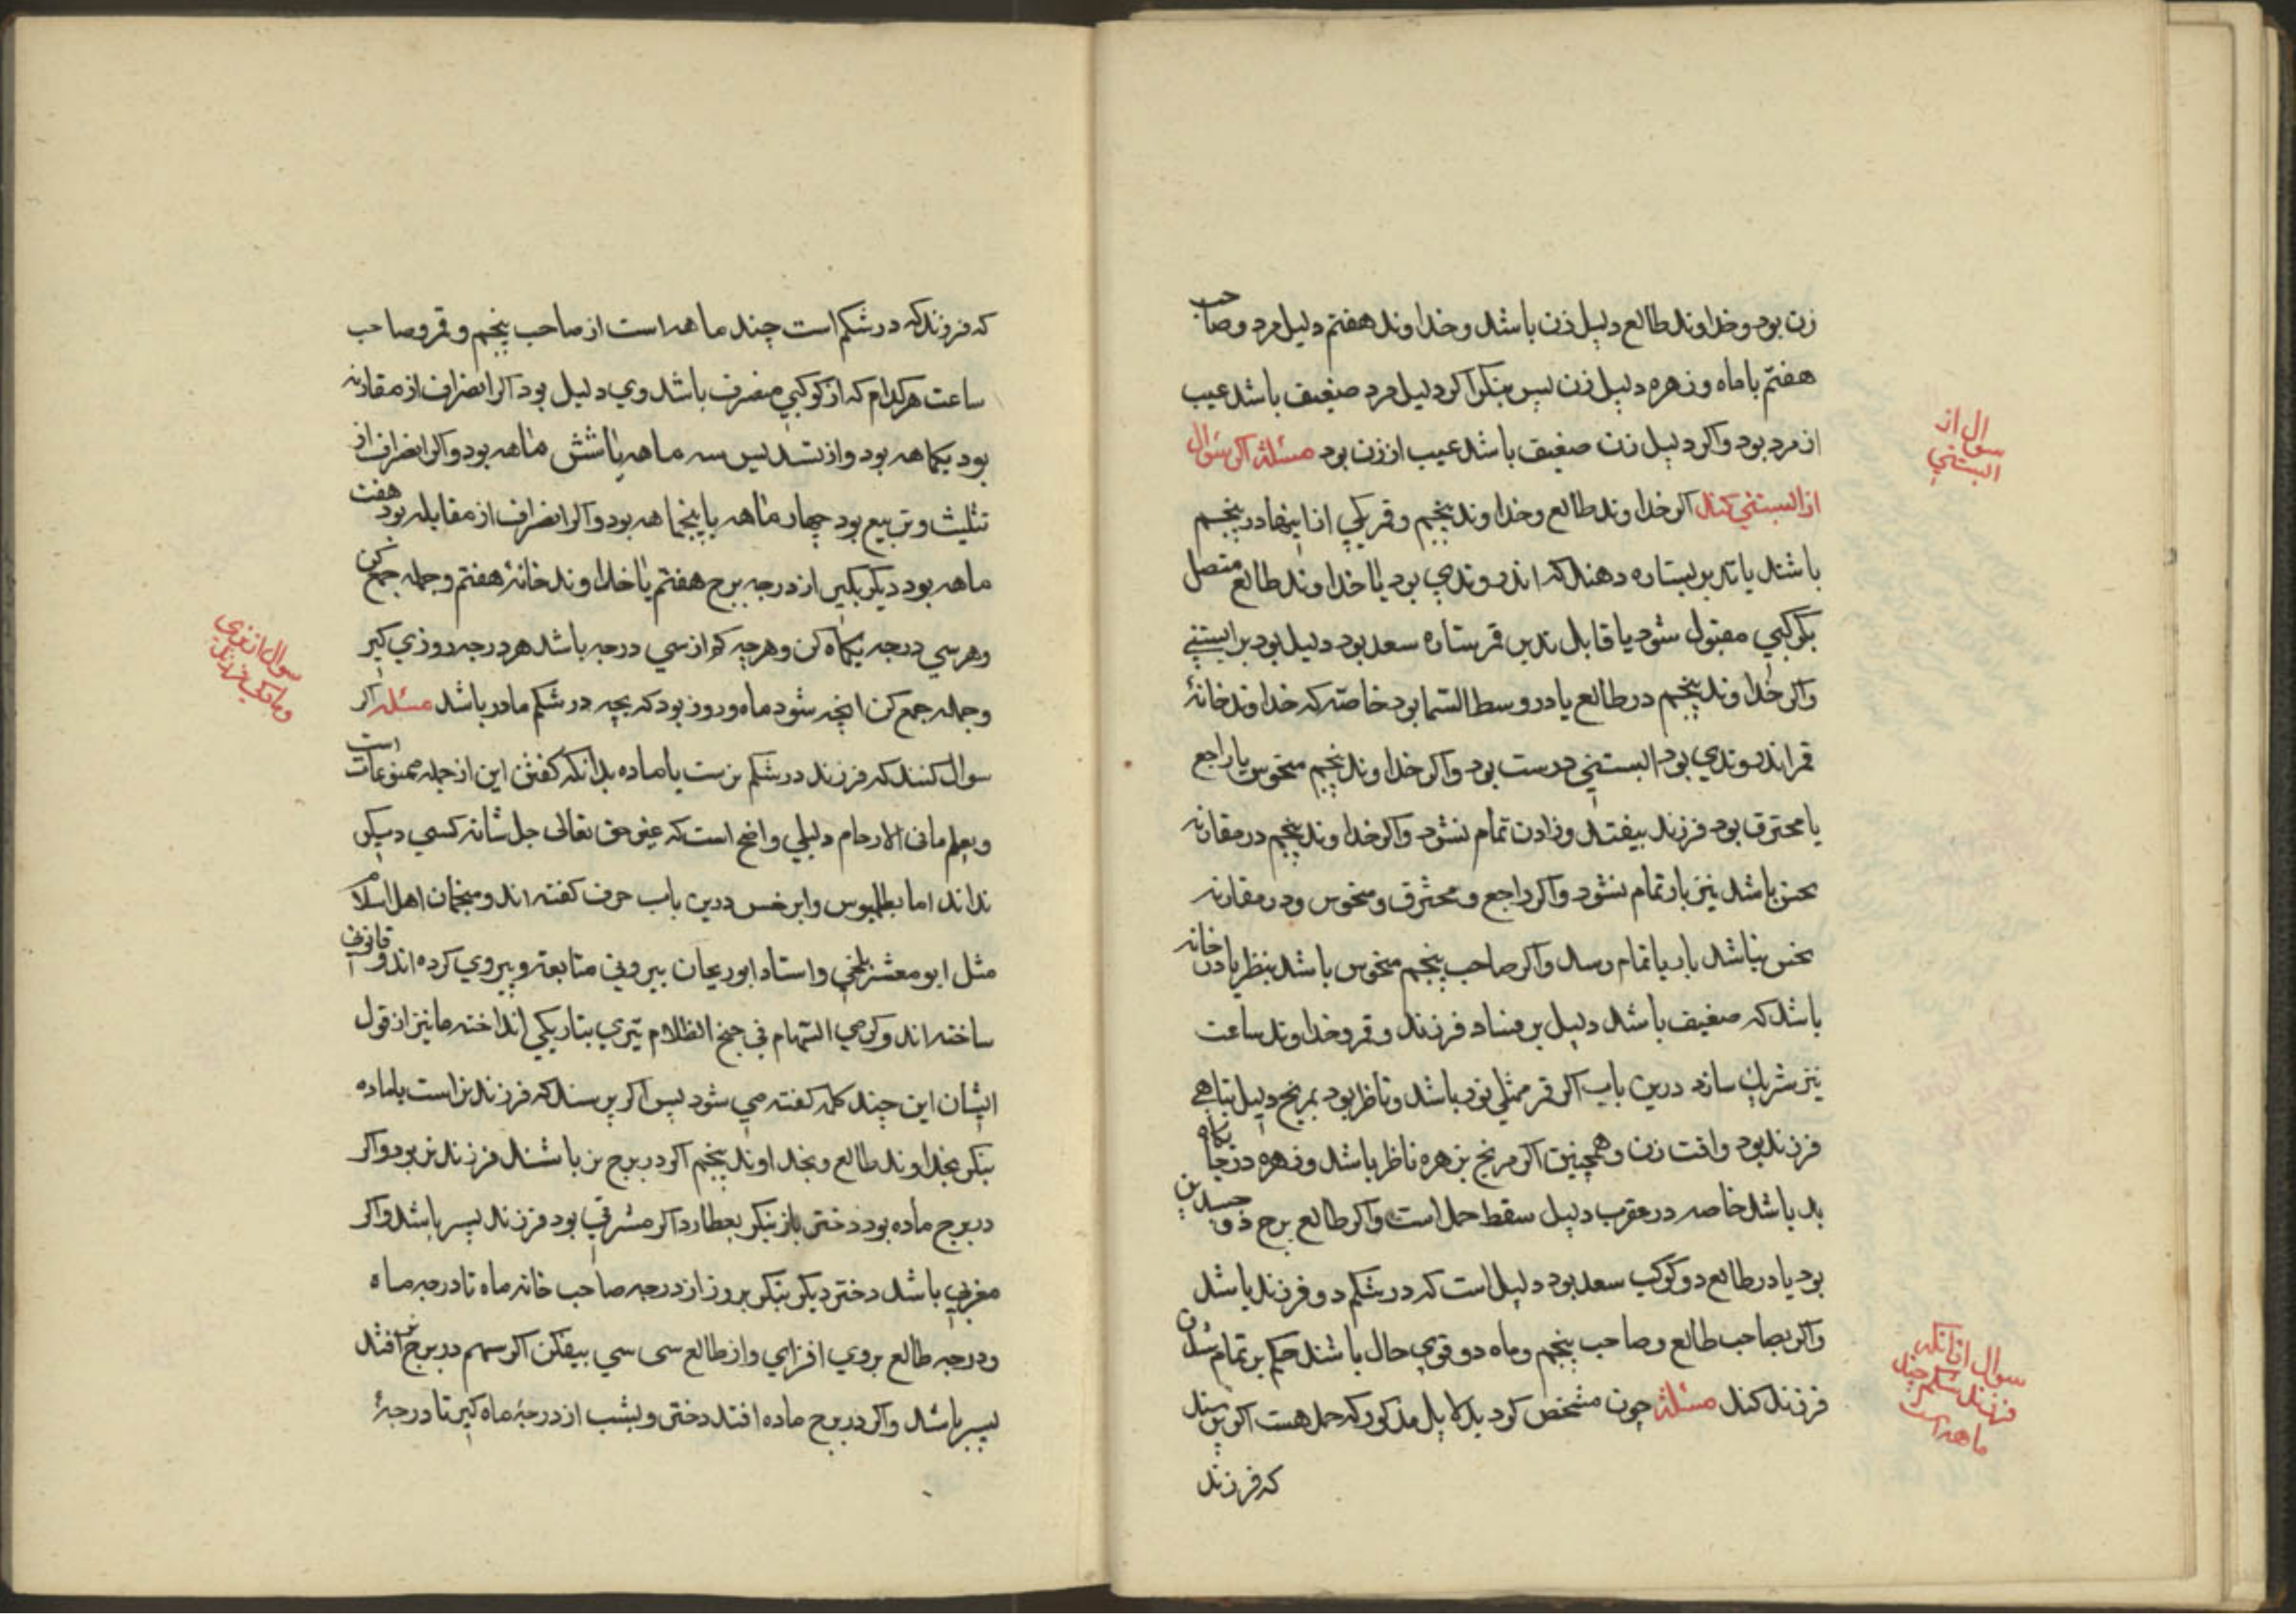 زن بود و خداوند طالع دلیل زن باشد و خداوند هفتم دلیل مرد و صاحب
هفتم با ماه و زهره دلیل زن پس بنکر اکر دلیل مرد ضعیف باشد عیب
از مرد بود و اکر دلیل زن ضعیف باشد عیب از زن بود مسئلة اکر سؤال
از البستنی کنند اکر خداوند طالع و خداوند پنجم و قمر یکی از اینها در پنجم
باشند یا تدبیر بستاره دهند که اندر وتدی بود یا خداوند طالع متصل
بکوکبی مقبول شود یا قابل تدبیر قمر ستاره سعد بود دلیل بود بر ابستنی
و اکر خداوند پنجم در طالع یا در وسط السما بود خاصّه که خداوند خانهٔ
قمر اندر وتدی بود البستنی درست بود و اکر خداوند پنجم منحوس یا راجع
یا محترق بود فرزند بیفتد و زادن تمام نشود و اکر خداوند پنجم در مقارنه
نحس باشد نیز بار تمام نشود و اکر راجع و محترق و منحوس و در مقارنه
نحس نباشد بار بتمام رسد و اکر صاحب پنجم منحوس باشد بنظر یا در خانه
باشد که ضعیف باشد دلیل بر فساد فرزند و قمر و خداوند ساعت
نیز شریک سازد درین باب اکر قمر ممتلی نور باشد و ناظر بود بمریخ دلیل تباهی
فرزند بود وافت زن و همچنین اکر مریخ بزهره ناظر باشد و زهره در جایکاه
بد باشد خاصه در عقرب دلیل سقط حمل است و اکر طالع برج ذو جسدین
بود یا در طالع دو کوکب سعد بود دلیل است که در شکم دو فرزند باشد
و اکر صاحب طالع و صاحب پنجم و ماه دو قوی حال باشند حکم بر تمام شدن
فرزند کند مسئلة چون مشخص کرد بدلایل مذکور که حمل هست اکر پرسند
که فرزند
سوال از
البستنی
سوال از انکه
فرزند در شکم چند
ماهه است
که فرزند که در شکم است چند ماهه است از صاحب پنجم و قمر و صاحب
ساعت هر کدام که از کوکبی منصرف باشد وی دلیل بود اکر انصراف از مقارنه
بود یکماهه بود و از تسدیس سه ماهه یا شش ماهه بود و اکر انصراف از
تثلیث و تربیع بود چهار ماهه یا پنجماهه بود و اکر انصراف از مقابله بود هفت
ماهه بود دیکر بکیر از درجه برج هفتم یا خداوند خانهٔ هفتم و جمله جمع کن
و هر سی درجه یکماه کن و هرچه کم از سی درجه باشد هر درجه روزی کیر
و جمله جمع کن انچه شود ماه و روز بود که بچه در شکم مادر باشد مسئله اکر
سوال کنند که فرزند در شکم نرست یا ماده بدانکه کفتن این از جمله ممنوعات است
و یعلم مافی الارحام دلیلی واضح است که غیر حق تعالی جل شانه کسی دیکر
نداند اما بطلمیوس و ابرخس درین باب حرف کفته اند و منجمان اهل اسلام
مثل ابو معشر بلخی و استاد ابوریحان بیرونی متابعة و پیروی کرده اند و قانون
ساخته اند و کرمی السّهام فی جنح الظلام تیری بتاریکی انداخته ما نیز از قول
ایشان این چند کلمه کفته می شود پس اکر پرسند که فرزند نر است یا ماده
بنکر بخداوند طالع و بخداوند پنجم اکر در برج نر باشند فرزند نر بود و اکر
در برج ماده بود دختر باز بنکر بعطارد اکر مشرقی بود فرزند پسر باشد و اکر
مغربی باشد دختر دیکر بنکر بروز از درجه صاحب خانه ماه تا درجه ماه
و درجه طالع بروی افزای و از طالع سی سی بیفکن اکر سهم در برج نر افتد
پسر باشد و اکر در برج ماده افتد دختر و بشب از درجهٔ ماه کیر تا درجهٔ
سوال از نری
و مادکی فرزند